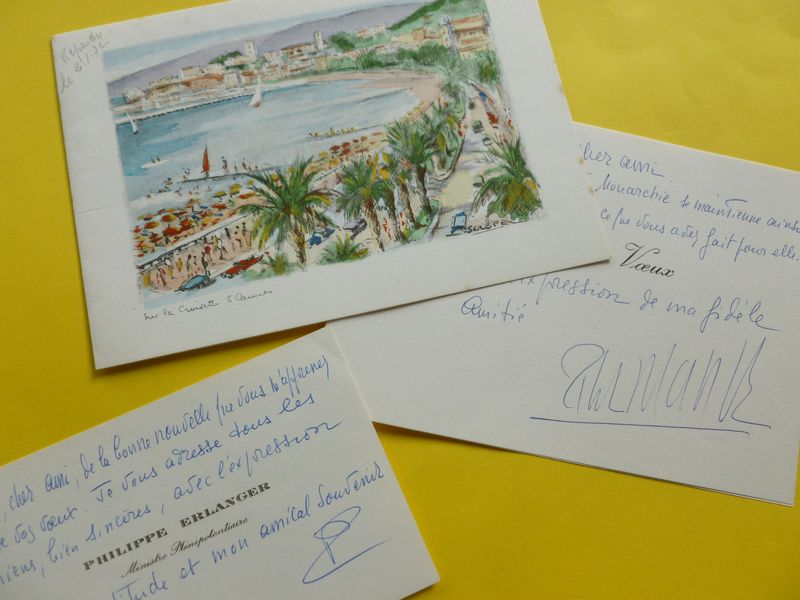 Répondu
le 3/1/72
Sur la Croisette à Cannes
cher ami.
Monarchie se maintienne ainsi
ce que vous avez fait pour elle.
Vœux
expression de ma fidèle
Amitié
, cher ami, de la bonne nouvelle que vous m'apprenez
vos vœux. Je vous adresse tous les
miens, bien sincères, avec l'expression
PHILIPPE ERLANGER
Ministre Plénipotentiaire
titude et mon amical souvenir